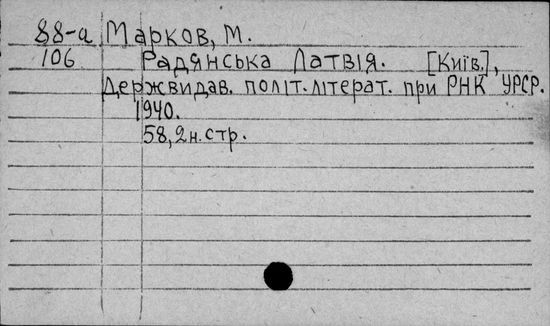 88-а Марков, М.
106 Радянська Латвія. [Київ.],
Держвидав. політ. літерат. при РНК УРСР.
1940.
58, 2н. стр.